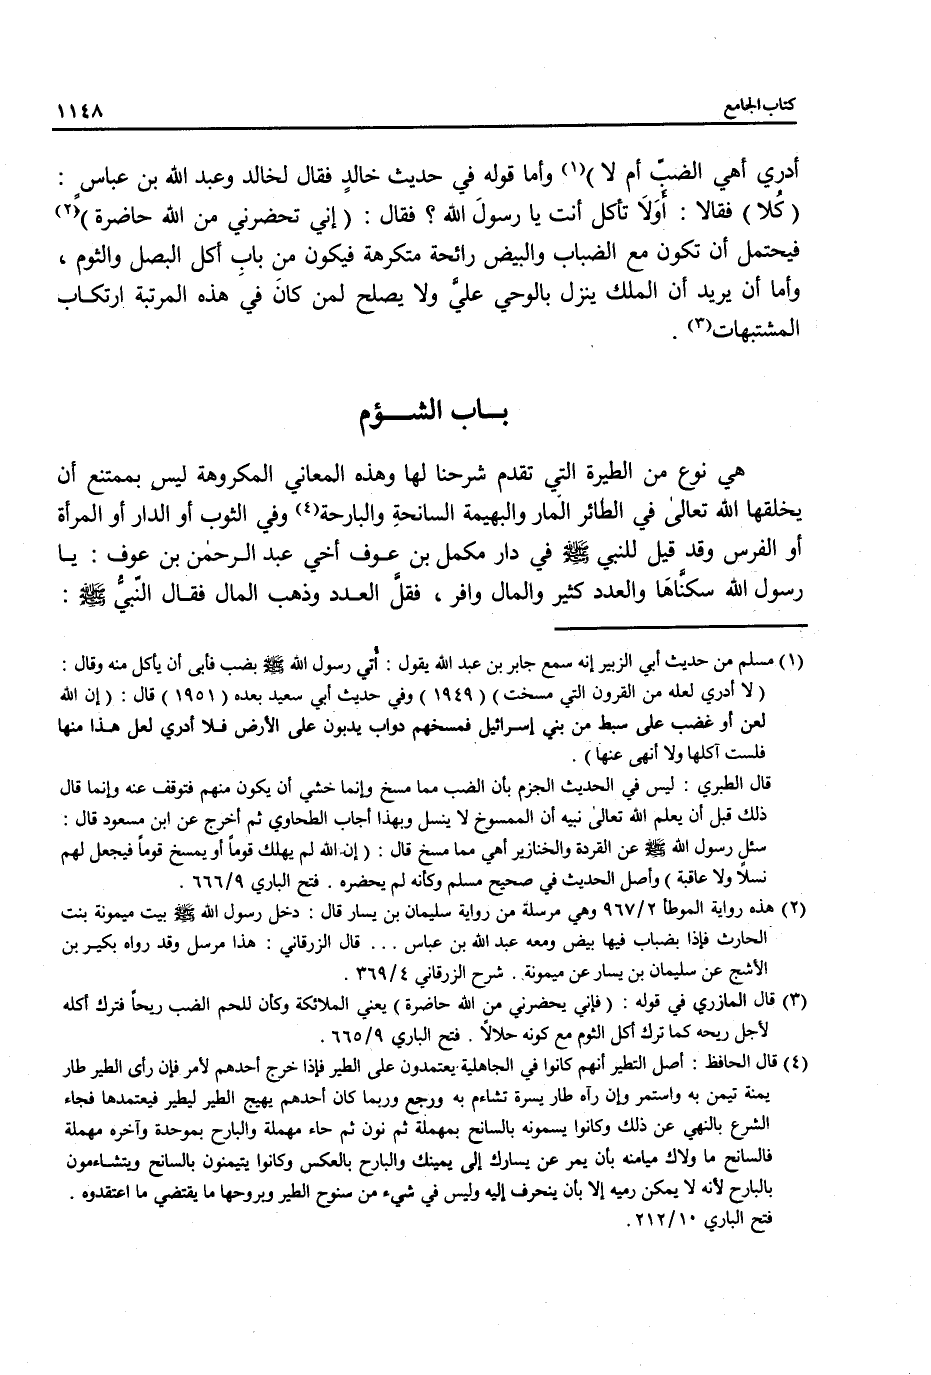 كتاب الجامع ١١٤٨
أدري أهي الضبّ أم لا )(١) وأما قوله في حديث خالدٍ فقال لخالد وعبد الله بن عباسٍ :
( كُلا ) فقالا : أَوَلَا تأكل أنت يا رسولَ الله ؟ فقال : ( إني تحضرني من الله حاضرة )(٢)
فيحتمل أن تكون مع الضباب والبيض رائحة متكرهة فيكون من بابِ أكل البصل والثوم ،
وأما أن يريد أن الملك ينزل بالوحي عليَّ ولا يصلح لمن كانَ في هذه المرتبة ارتكـاب
المشتبهات(٣) .
بـــاب الشـــؤم
هي نوع من الطيرة التي تقدم شرحنا لها وهذه المعاني المكروهة ليس بممتنع أن
يخلقها الله تعالىٰ في الطائر المار والبهيمة السانحةِ والبارحة(٤) وفي الثوب أو الدار أو المرأة
أو الفرس وقد قيل للنبي ﷺ في دار مكمل بن عـوف أخي عبد الـرحمٰن بن عوف : يـا
رسول الله سكنَّاهَا والعدد كثير والمال وافر ، فقلَّ العـدد وذهب المال فقـال النّبيُّ ﷺ :
(١) مسلم من حديث أبي الزبير إنه سمع جابر بن عبد الله يقول : أُتي رسول الله ﷺ بضب فأبى أن يأكل منه وقال :
( لا أدري لعله من القرون التي مسخت ) ( ١٩٤٩ ) وفي حديث أبي سعيد بعده ( ١٩٥١ ) قال : ( إن الله
لعن أو غضب على سبط من بني إسـرائيل فمسخهم دواب يدبون على الأرض فـلا أدري لعل هـذا منها
فلست آكلها ولا أنهى عنها ) .
قال الطبري : ليس في الحديث الجزم بأن الضب مما مسخ وإنما خشي أن يكون منهم فتوقف عنه وإنما قال
ذلك قبل أن يعلم الله تعالىٰ نبيه أن الممسوخ لا ينسل وبهذا أجاب الطحاوي ثم أخرج عن ابن مسعود قال :
سئل رسول الله ﷺ عن القردة والخنازير أهي مما مسخ قال : ( إن الله لم يهلك قوماً أو يمسخ قوماً فيجعل لهم
نسلاً ولا عاقبة ) وأصل الحديث في صحيح مسلم وكأنه لم يحضره . فتح الباري ٩/ ٦٦٦ .
(٢) هذه رواية الموطأ ٢/ ٩٦٧ وهي مرسلة من رواية سليمان بن يسار قال : دخل رسول الله ﷺ بيت ميمونة بنت
الحارث فإذا بضباب فيها بيض ومعه عبد الله بن عباس ... قال الزرقاني : هذا مرسل وقد رواه بكير بن
الأشج عن سليمان بن يسار عن ميمونة . شرح الزرقاني ٤/ ٣٦٩ .
(٣) قال المازري في قوله : ( فإني يحضرني من الله حاضرة ) يعني الملائكة وكأن للحم الضب ريحاً فترك أكله
لأجل ريحه كما ترك أكل الثوم مع كونه حلالاً . فتح الباري ٩/ ٦٦٥ .
(٤) قال الحافظ : أصل التطير أنهم كانوا في الجاهلية يعتمدون على الطير فإذا خرج أحدهم لأمر فإن رأى الطير طار
يمنة تيمن به واستمر وإن رآه طار يسرة تشاءم به ورجع وربما كان أحدهم يهيج الطير ليطير فيعتمدها فجاء
الشرع بالنهي عن ذلك وكانوا يسمونه بالسانح بمهملة ثم نون ثم حاء مهملة والبارح بموحدة وآخره مهملة
فالسانح ما ولاك ميامنه بأن يمر عن يسارك إلى يمينك والبارح بالعكس وكانوا يتيمنون بالسانح ويتشـاءمون
بالبارح لأنه لا يمكن رميه إلا بأن ينحرف إليه وليس في شيء من سنوح الطير وبروحها ما يقتضي ما اعتقدوه .
فتح الباري ١٠/ ٢١٢ .